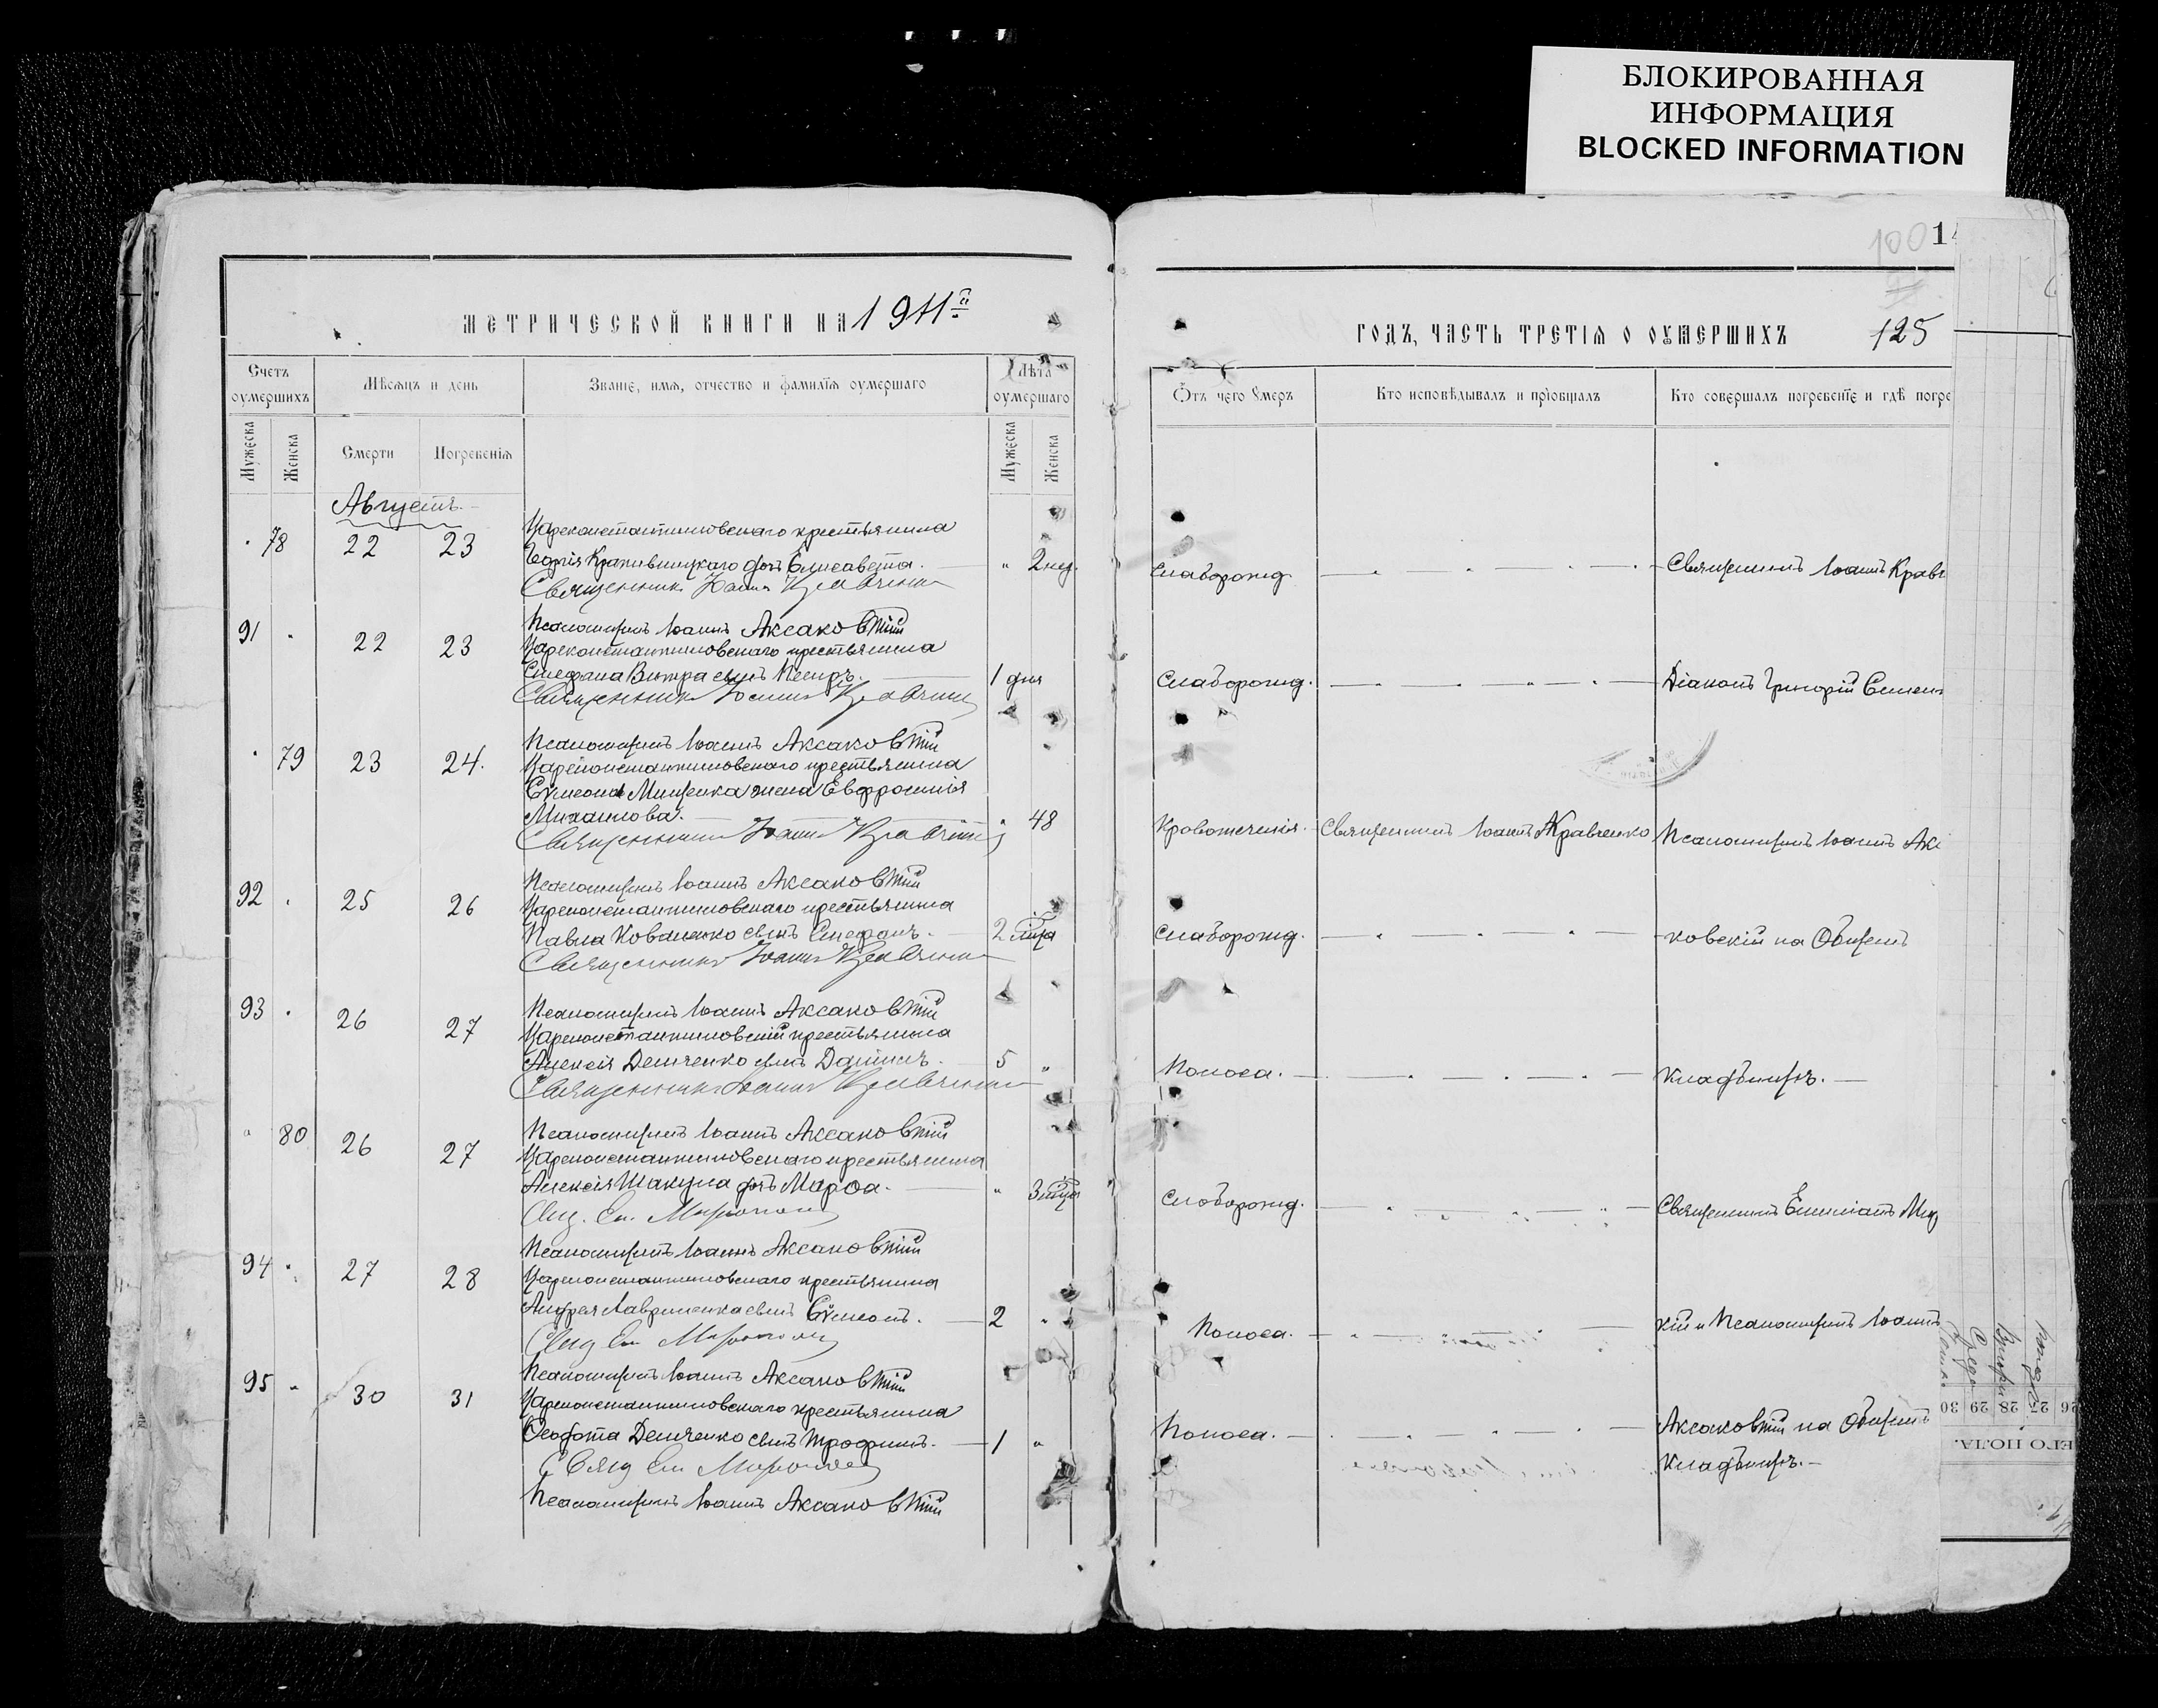 БЛОКИРОВАННАЯ
ИНФОРМАЦИЯ
BLOCKED INFORMATION
МЕТРИЧЕСКОЙ КНИГИ НА 1911й
Счетъ оумершихъ
Мѣсяцъ и день
Званіе, имя, отчество и фамилія оумершаго
Лѣта оумершаго
Мужеска
Женска
Смерти
Погребенія
Мужеска
Женска
Августъ
78 22 23 Цареконстантиновскаго крестьянина
Георгія Крапивницкаго дочь Елисавета. " 2 нед.
Священникъ Іоаннъ Кравченко
Псаломщикъ Іоаннъ Аксаковскій
91 22 23 Цареконстантиновскаго крестьянина
Стефана сынъ Петръ. 1 дня
Священникъ Іоаннъ Кравченко
Псаломщикъ Іоаннъ Аксаковскій
79 23 24. Цареконстантиновскаго крестьянина
Сѵмеона Мищенка жена Евфросинія
Михаилова. 48
Священникъ Іоаннъ Кравченко
Псаломщикъ Іоаннъ Аксаковскій
92 25 26 Цареконстантиновскаго крестьянина
Павла Коваленко сынъ Стефанъ. 2 мца
Священникъ Іоаннъ Кравченко
Псаломщикъ Іоаннъ Аксаковскій
93 26 27 Цареконстантиновскій крестьянина
Алексія Демченко сынъ Даніилъ. 5 "
Священникъ Іоаннъ Кравченко
Псаломщикъ Іоаннъ Аксаковскій
80 26 27 Цареконстантиновскаго крестьянина
Алексія Шакула дочь Марѳа. " 3 мца
Свящ. Ем.
Псаломщикъ Іоаннъ Аксаковскій
94 27 28 Цареконстантиновскаго крестьянина
Андрея Лавриненка сынъ Сѵмеонъ. 2 "
Свящ Ем
Псаломщикъ Іоаннъ Аксаковскій
95 30 31 Цареконстантиновскаго крестьянина
Ѳеодота Демченко сынъ Трофимъ. 1 "
Свящ Ем
Псаломщикъ Іоаннъ Аксаковскій
100
14
ГОДЪ, ЧАСТЬ ТРЕТІЯ О ОУМЕРШИХЪ 125
Отъ чего умеръ
Кто исповѣдывалъ и пріобщалъ
Кто совершалъ погребеніе и гдѣ погре
Слаборожд. Священникъ Іоаннъ Крав
Слаборожд. Діаконъ Григорій Семен
Кровотеченія. Священникъ Іоаннъ Кравченко Псаломщикъ Іоаннъ Акс
Слаборожд. ковскій на Общемъ
Поноса. Кладбищѣ.
Слаборожд. Священникъ Емиліанъ Мир
Поноса. кій и Псаломщикъ Іоаннъ
Поноса. Аксаковскій на Общемъ
Кладбищѣ.
26 27 28 29 30
ЕГО ПОЛА.